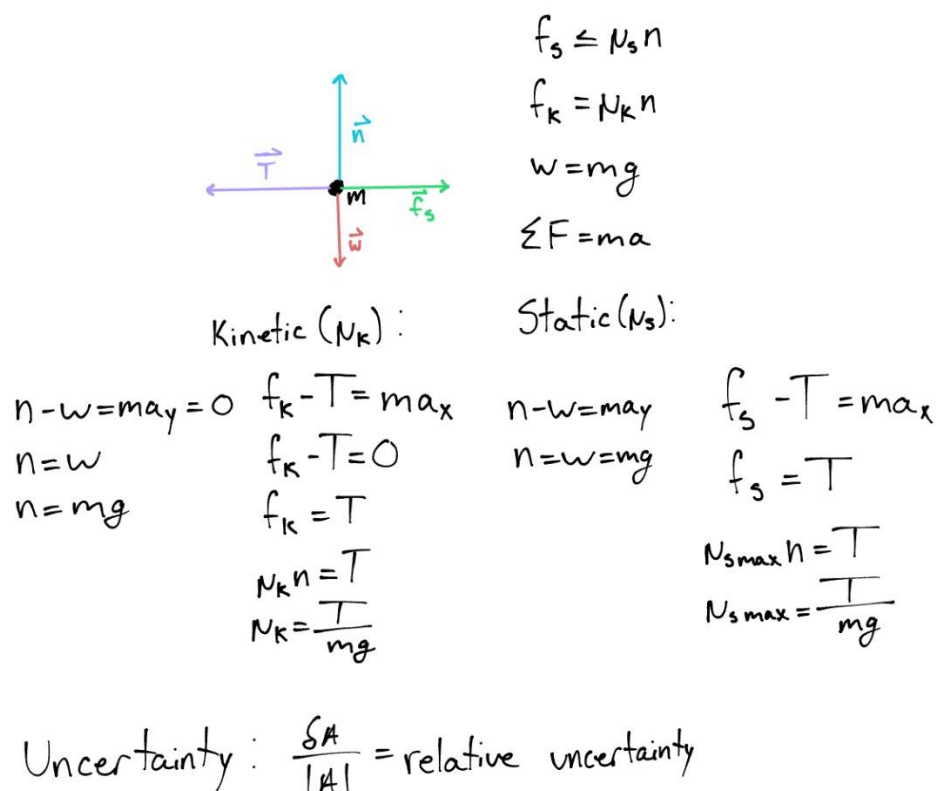 f_s ≤ μ_s n
f_k = μ_k n
w = mg
ΣF = ma
n⃗
T⃗
m
f⃗_s
w⃗
Kinetic (μ_k):
n - w = ma_y = 0
n = w
n = mg
f_k - T = ma_x
f_k - T = 0
f_k = T
μ_k n = T
μ_k = T/mg
Static (μ_s):
n - w = ma_y
n = w = mg
f_s - T = ma_x
f_s = T
μ_s max n = T
μ_s max = T/mg
Uncertainty: δA/|A| = relative uncertainty